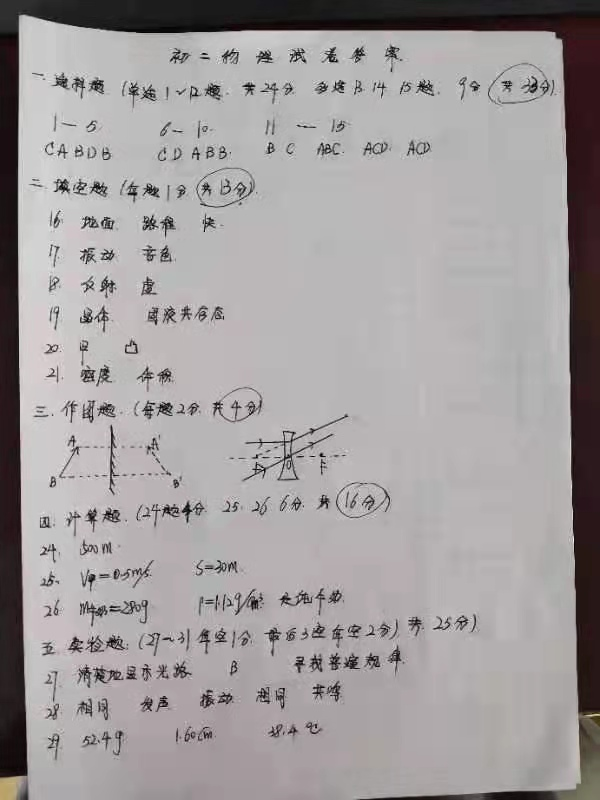 初二物理试卷答案
一.选择题.(单选1~12题.共24分.多选13.14.15题.9分.共33分).
1—5. 6—10. 11—15
CABDB. CDABB. BC ABC. ACD. ACD
二.填空题(每题1分.共13分).
16. 地面 路程 快.
17. 振动 音色.
18. 反射 虚
19. 晶体. 固液共存态
20. 甲 凸
21. 密度 体积.
三.作图题.(每题2分.共4分)
A A'
B B'
F O F
四.计算题.(24题4分.25.26 6分.共16分)
24. 500m.
25. V甲=0.5m/s. S=30m.
26. =280g ρ=1.12g/cm³.
五.实验题.(27~31每空1分.最后3空每空2分)共25分)
27. 清楚地显示光路 B 寻找普遍规律.
28. 相同 发声 振动 相同 共鸣
29. 52.4g 1.60cm. 38.4℃